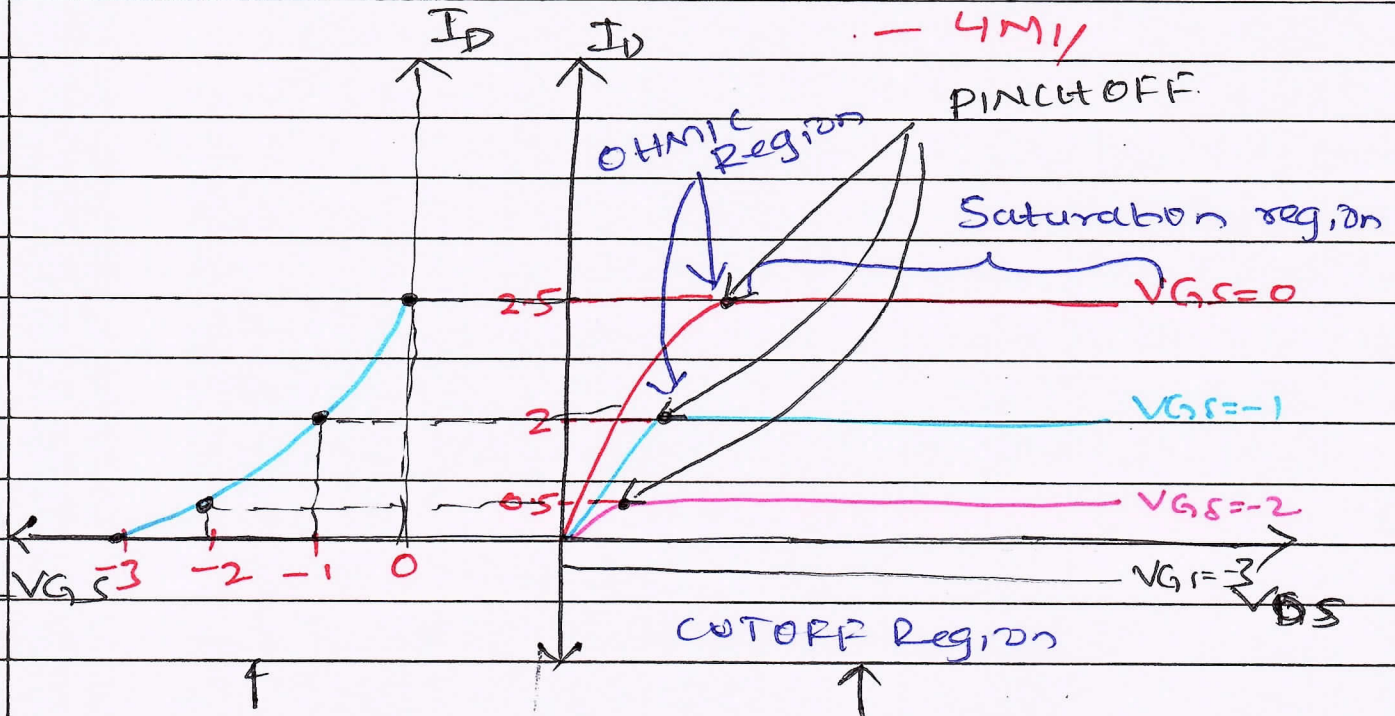 I_D I_D
- 4M//
PINCHOFF
OHMIC
Region
Saturation region
2.5 VGS=0
2 VGS=-1
0.5 VGS=-2
-3 -2 -1 0
VGS
VGS=-3
VDS
CUTOFF Region